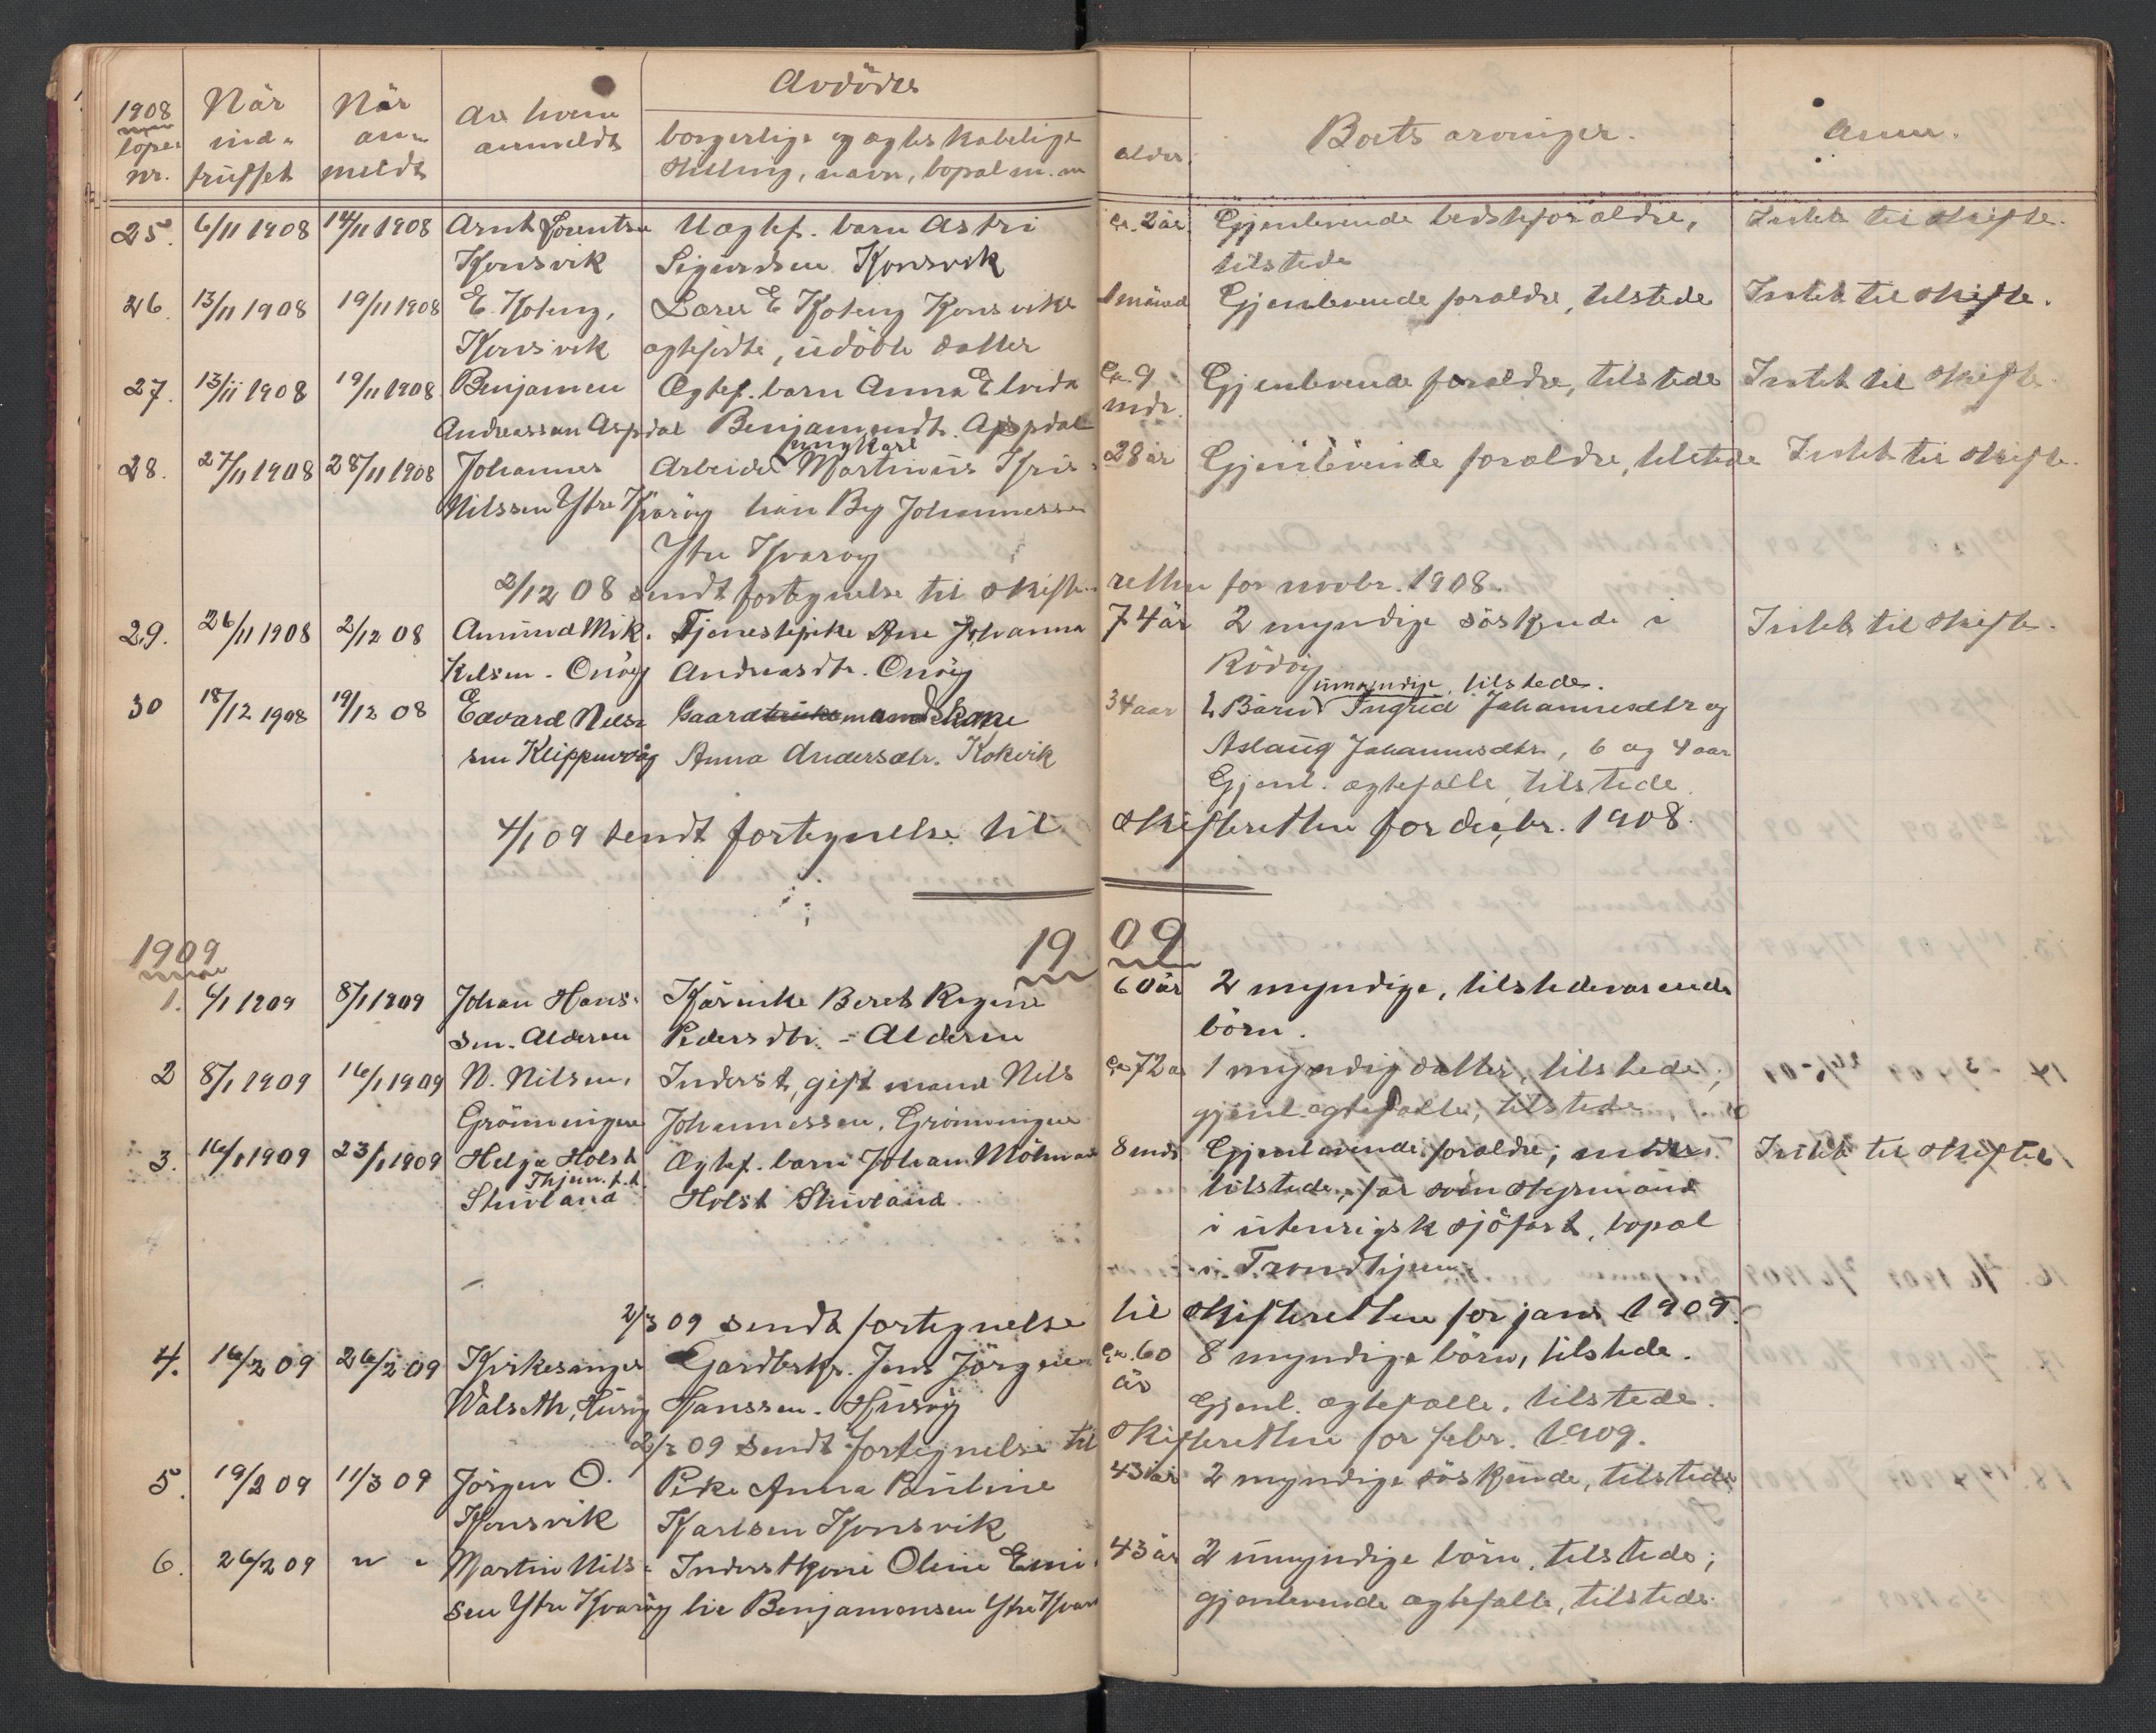 1908
löpe- nr.
Når ind- truffet
Når an- meldt
Av hvem anmeldt
Avdödes
borgerlige og egteskabelige
stilling, navn, bopæl m. m
alder.
Boets arvinger.
Anm.
25. 6/11 1908 14/11 1908 Arnt Lorents Uegtef. barn Astri ca. 2 år Gjenlevende bedsteforældre, Intet til skifte.
Konsvik Sigurdsen Konsvik tilstede
26. 13/11 1908 19/11 1908 E. Koteng, Lærer E Koteng Konsviks 1 måned Gjenlevende foræeldre, tilstede Intet til skifte.
Konsvik egtefødte, udöbte datter
27. 13/11 1908 19/11 1908 Benjamen Egtef. barn Anna Elvida Ca. 9 Gjenlevende forældre, tilstede Intet til skifte.
Andreassen Aspdal Benjamensdtr. Aspdal mdr.
ungkarl
28. 27/11 1908 28/11 1908 Johannes Arbeider Martinus Kris- 28 år Gjenlevende forældre, tilstede Intet til skifte.
Nilssen Ytre Kvaröy Johannessen
Ytre Kvaröy
2/12 08 sendt fortegnelse til skifteretten for novbr. 1908.
29. 26/11 1908 2/12 08 Amund Mik- Tjenestepike Ane Johanna 74 år 2 myndige söskende i Intet til skifte.
kelsen - Onöy Andreasdtr. Onöy Rödöy
umyndige, tilstede.
30 18/12 1908 19/12 08 Edvard Nils- Gaardbrukermandskone 34 aar 2 Barn Ingrid Johannesdtr og
sen Klippenvåg Anna Andersdtr. Kokvik Aslaug Johannesdtr, 6 og 4 aar
Gjenl. egtefælle tilstede
4/1 09 sendt fortegnelse til skifteretten for decbr. 1908.
1909
1909
1. 6/1 1909 8/1 1909 Johan Hans- Kårenke Beret Regine 60 år 2 myndige, tilstedeværende
sen. Alderen Pedersdtr. - Alderen börn.
2 8/1 1909 16/1 1909 N. Nilsen, Inderst, gift mand Nils Ca 72 a 1 myndig datter, tilstede;
Grönningen Johannessen, Grönningen gjenl. egtefælle, tilstede
3. 16/1 1909 23/1 1909 Helga Holst Egtef. barn Johan 8 mdr Gjenlevende forældre; moder Intet til skifte
Thjem. t. t.
Stuvland Holst Stuvland tilstede, far som styrmand
i utenrigsk sjöfart, bopæl
i Trondhjem.
2/3 09 sendt fortegnelse til skifteretten for jan. 1909.
4. 16/2 09 26/2 09 Kirkesanger Gardbrkr. Jens Jörgen Ca. 60 8 myndige börn, tilstede.
Walseth, Husöy Hanssen. Husöy år Gjenl. egtefælle, tilstede.
2/3 09 sendt fortegnelse til skifteretten for febr. 1909.
5. 19/2 09 11/3 09 Jörgen O. Pike Anna Pauline 43 år 2 myndige söskende, tilstede
Konsvik Karlsen Konsvik
6. 26/2 09 " " Martin Nils- Inderstkone Oline Emi- 43 år 2 umyndige börn, tilstede;
sen Ytre Kvaröy lie Benjamensen Ytre Kvarö gjenlevende egtefælle, tilstede.